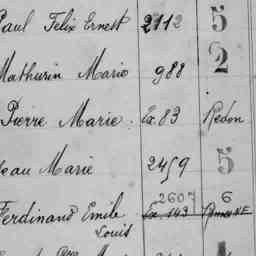 Paul Felix Ernest 2112 5
Mathurin Marie 988 2
Pierre Marie Ex. 83 Redon
Jean Marie 2459 5
2607 6
Ferdinand Emile Ex. 143
Louis